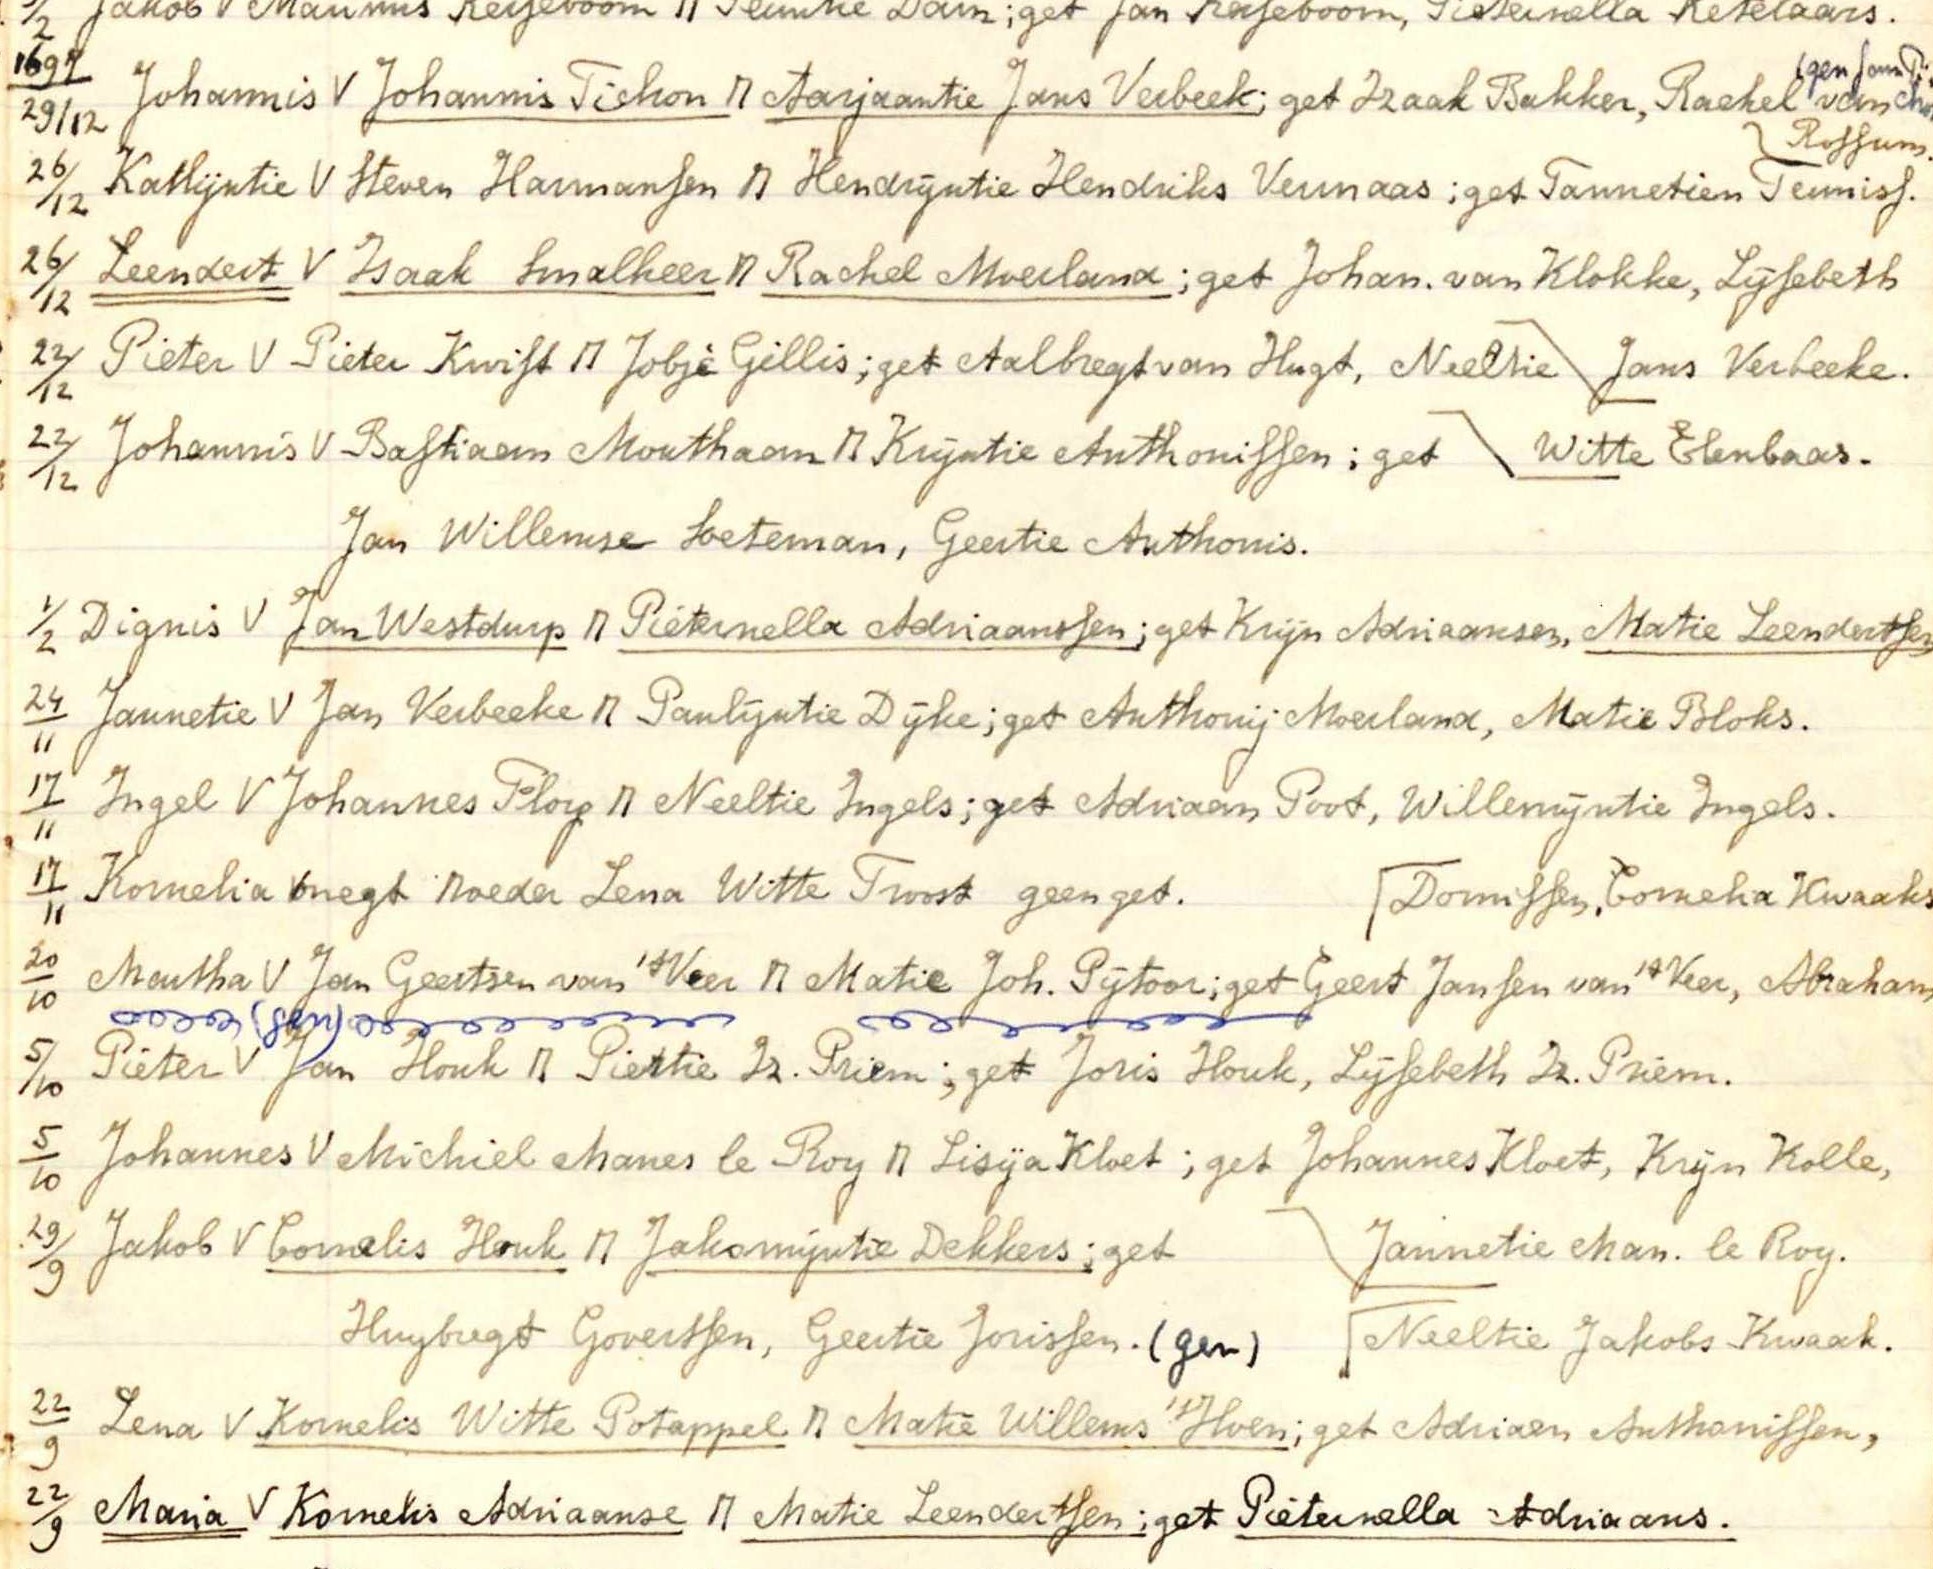 1/2 Jakob V Marinus Reijseboom M Teuntie Dam; get Jan Reijseboom, Pieternella Ketelaars.
1697
29/12 Johannis V Johannis Tichon M Aarjaantie Jans Verbeek; get Izaak Bakker, Rachel van
Rossum.
26/12 Kathijntie V Steven Harmansen M Hendrijntie Hendriks Vermaas; get Tannetien Teuniss.
26/12 Leendert V Isaak Smalheer M Rachel Moerland; get Johan. van Klokke, Lijsebeth
22/12 Pieter V Pieter Kwist M Jobje Gillis; get Aalbregt van Hugt, Neeltie Jans Verbeeke.
22/12 Johannis V Bastiaan Mouthaan M Krijntie Anthonissen; get Witte Elenbaas.
Jan Willemse Soeteman, Geertie Anthonis.
1/2 Dignis V Jan Westdurp M Pieternella Adriaanssen; get Krijn Adriaansen, Matie Leendertsen
24/11 Jannetie V Jan Verbeeke M Paulijntie Dijke; get Anthonij Moerland, Matie Bloks.
17/11 Ingel V Johannes Flory M Neeltie Ingels; get Adriaen Poot, Willemijntie Ingels.
17/11 Kornelia onegt Moeder Lena Witte Troost geen get. Dornissen, Cornelia Kwaaks
20/10 Martha V Jan Geertsen van 't Veer M Matie Joh. Pijtoor; get Geert Jansen van 't Veer, Abraham
5/10 Pieter V Jan Houk M Piertie Iz. Priem; get Joris Houk, Lijsebeth Iz. Priem.
5/10 Johannes V Michiel Manes le Roy M Lisija Kloet; get Johannes Kloet, Krijn Kolle,
29/9 Jakob V Cornelis Houk M Jakomijntie Dekkers; get Jannetie Man. le Roy.
Huybregt Govertsen, Geertie Jorissen. (gen) Neeltie Jakobs Kwaak.
22/9 Lena V Kornelis Witte Potappel M Matie Willems 't Hoen; get Adriaen Anthonissen,
22/9 Maria V Kornelis Adriaanse M Matie Leendertsen; get Pieternella Adriaans.